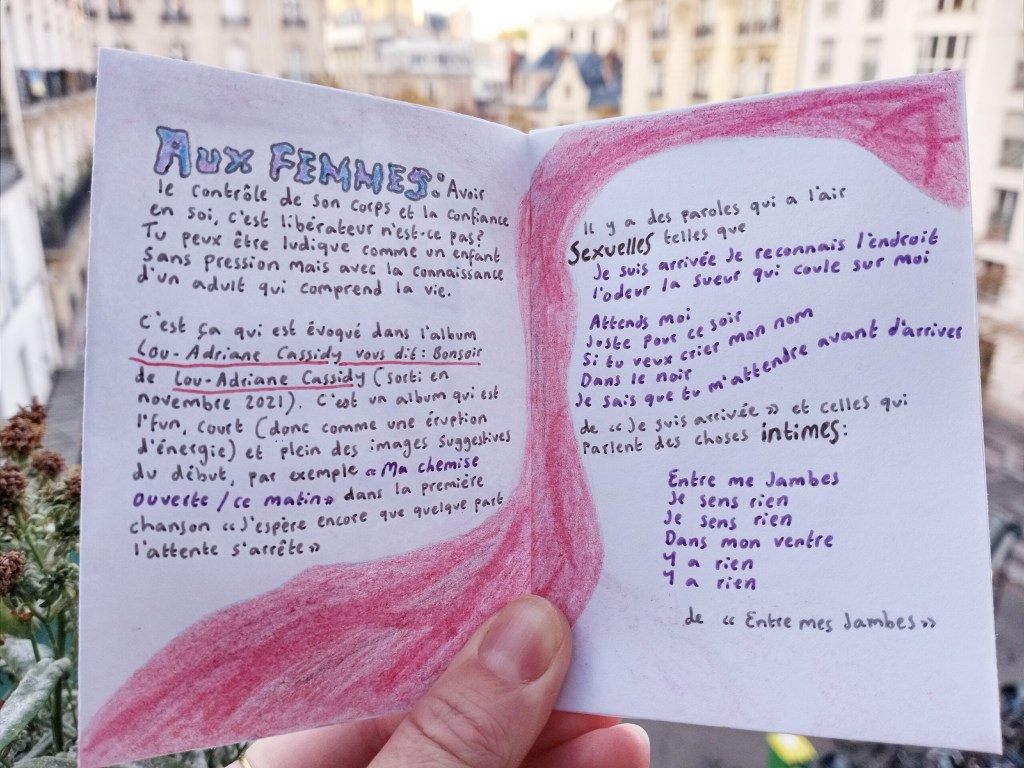 AUX FEMMES: Avoir
le contrôle de son corps et la confiance
en soi, c'est libérateur n'est-ce pas?
Tu peux être ludique comme un enfant
Sans pression mais avec la connaissance
d'un adult qui comprend la vie.
C'est ça qui est évoqué dans l'album
Lou-Adriane Cassidy vous dit: Bonsoir
de Lou-Adriane Cassidy (sorti en
novembre 2021). C'est un album qui est
l'fun, court (donc comme une éruption
d'énergie) et plein des images suggestives
du début, par exemple «Ma chemise
ouverte / ce matin» dans la première
chanson «J'espère encore que quelque part
l'attente s'arrête»
Il y a des paroles qui a l'air
Sexuelles telles que
Je suis arrivée Je reconnais l'endroit
l'odeur la sueur qui coule sur moi
Attends moi
Juste pour ce soir
Si tu veux crier mon nom
Dans le noir
Je sais que tu m'attendre avant d'arriver
de «Je suis arrivée» et celles qui
parlent des choses intimes:
Entre me Jambes
Je sens rien
Je sens rien
Dans mon ventre
Y a rien
Y a rien
de «Entre mes Jambes»